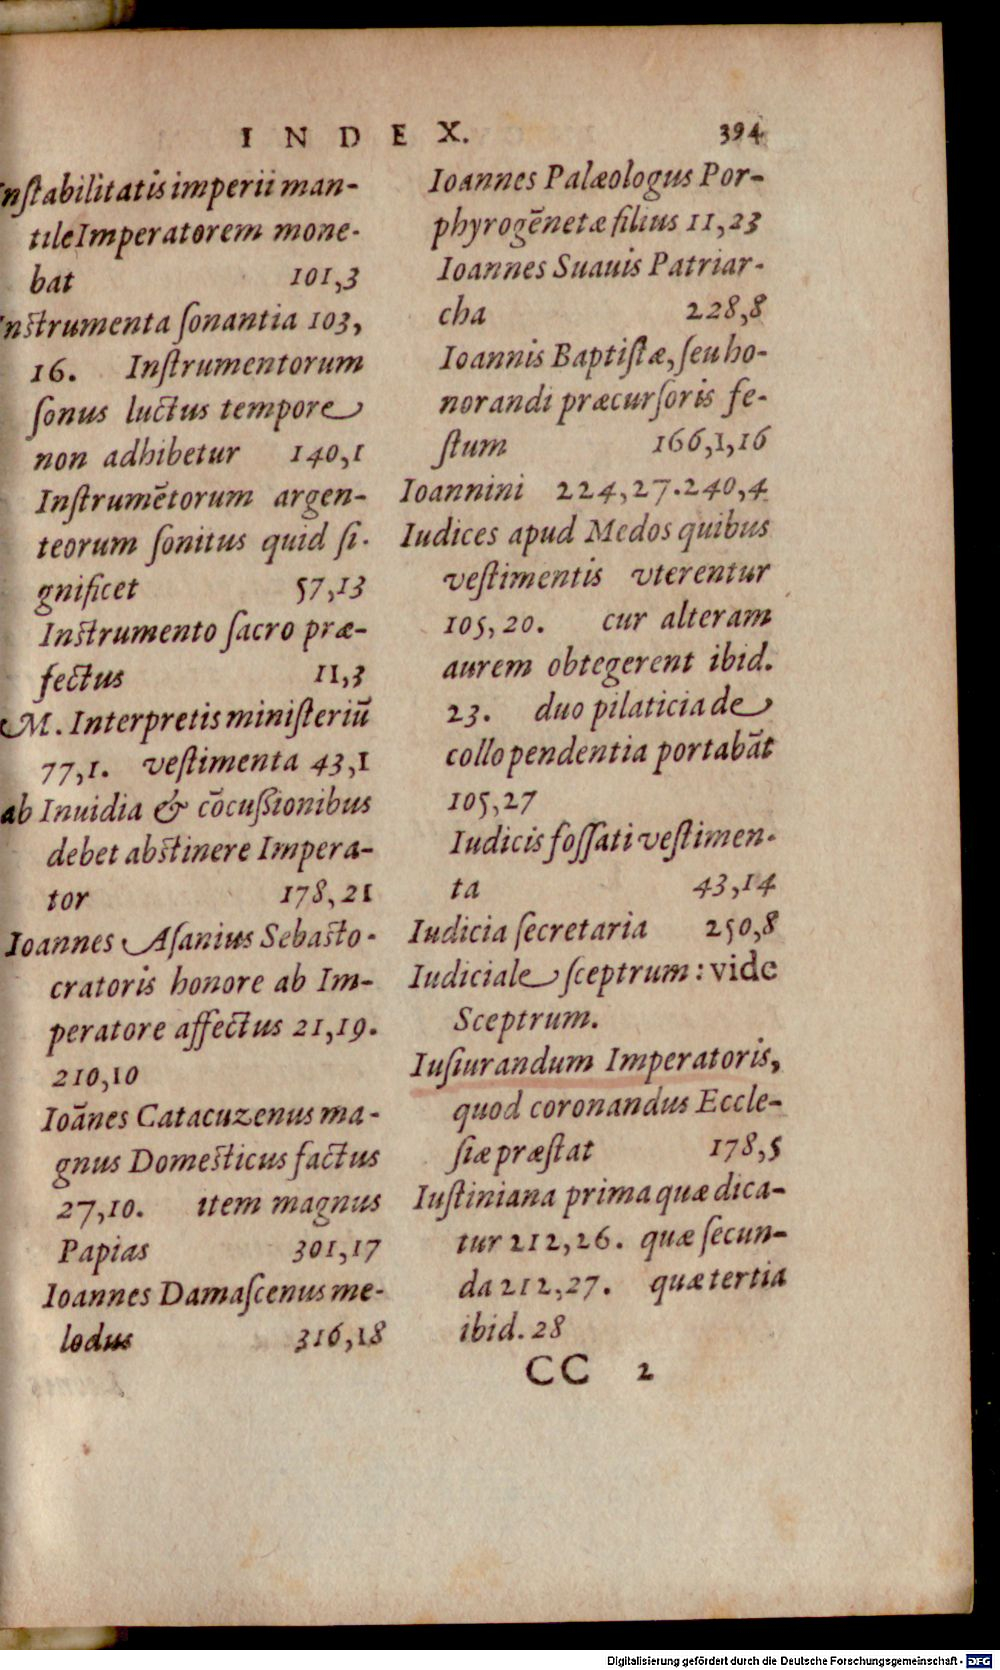 INDEX. 394
Inſtabilitatis imperii man-
tile Imperatorem mone-
bat 101,3
Inſtrumenta ſonantia 103,
16. Inſtrumentorum
ſonus luctus tempore
non adhibetur 140,1
Inſtrumẽtorum argen-
teorum ſonitus quid ſi-
gnificet 57,13
Inſtrumento ſacro præ-
fectus 11,3
M. Interpretis miniſteriũ
77,1. veſtimenta 43,1
ab Inuidia & cõcuſſionibus
debet abſtinere Impera-
tor 178,21
Ioannes Aſanius Sebaſto-
cratoris honore ab Im-
peratore affectus 21,19.
210,10
Ioãnes Catacuzenus ma-
gnus Domeſticus factus
27,10. item magnus
Papias 301,17
Ioannes Damaſcenus me-
lodus 316,18
Ioannes Palæologus Por-
phyrogẽnetæ filius 11,23
Ioannes Suauis Patriar-
cha 228,8
Ioannis Baptiſtæ, ſeu ho-
norandi præcurſoris fe-
ſtum 166,1,16
Ioannini 224,27.240,4
Iudices apud Medos quibus
veſtimentis vterentur
105,20. cur alteram
aurem obtegerent ibid.
23. duo pilaticia de
collo pendentia portabãt
105,27
Iudicis foſſati veſtimen-
ta 43,14
Iudicia ſecretaria 250,8
Iudiciale ſceptrum: vide
Sceptrum.
Iuſiurandum Imperatoris,
quod coronandus Eccle-
ſiæ præſtat 178,5
Iuſtiniana prima quæ dica-
tur 212,26. quæ ſecun-
da 212,27. quæ tertia
ibid. 28
CC 2
Digitalisierung gefördert durch die Deutsche Forschungsgemeinschaft - DFG